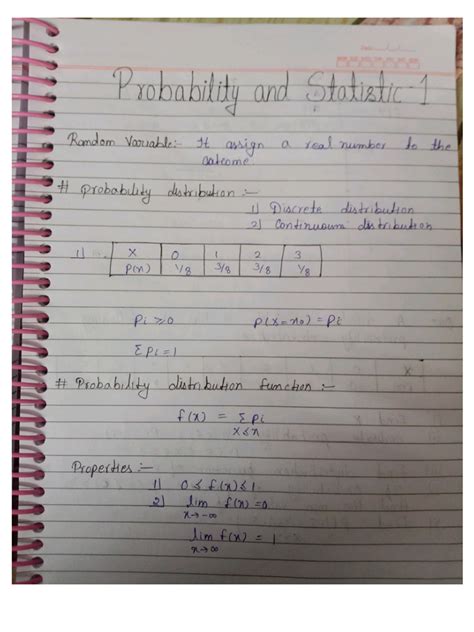 Probability and Statistic-1
Random Variable:- It assign a real number to the
outcome.
# probability distribution :-
1) Discrete distribution
2) Continuoum distribution
1) X 0 1 2 3
P(x) 1/8 3/8 3/8 1/8
Pi ≥ 0 P(X = x0) = Pi
Σ Pi = 1
# Probability distribution function :-
f(x) = Σ Pi
X ≤ x
Properties :-
1) 0 ≤ f(x) ≤ 1
2) lim f(x) = 0
x → -∞
lim f(x) = 1
x → ∞